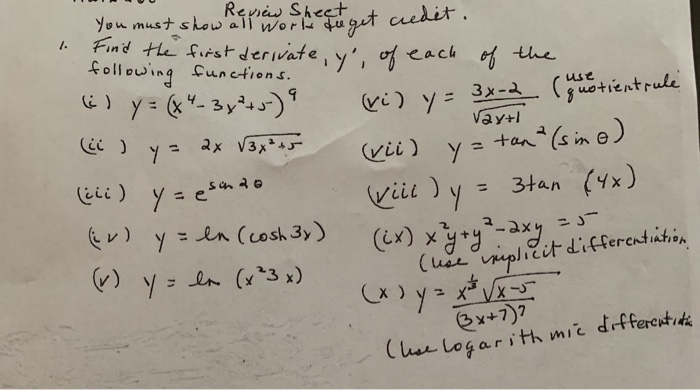 Review Sheet
You must show all work to get credit.
1. Find the first derivate, y', of each of the
following functions.
(i) y = (x⁴ - 3x² + 5)⁹
(ii) y = 2x √3x²+5
(iii) y = e^sin 2θ
(iv) y = ln (cosh 3x)
(v) y = ln (x²3x)
(vi) y = 3x-2 / √2x+1 (use quotient rule
(vii) y = tan² (sin θ)
(viii) y = 3tan (4x)
(ix) x²y + y² - 2xy = 5
(use implicit differentiation
(x) y = x^⅓ √x-5 / (3x+7)⁷
(Use Logarithmic